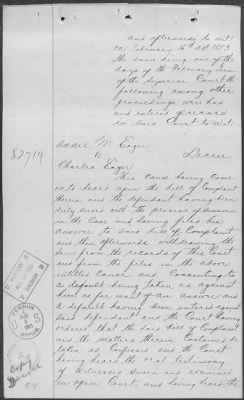 and afterwards to wit
on February 6th A.D. 1883
the same being one of the
days of the February Term
of the Superior Court the
following among other
proceedings were had
and entered of record
in said Court to wit:
Addie M. Eager
vs Decree
Charles Eager
This cause having come
on to be heard upon the bill of Complaint
therein and the defendant having been
duly served with the process of summons
in the case and having filed his
answer to said bill of Complaint
and then afterwards withdrawing the
same from the records of this Court
and from the files in the above
entitled Cause and Consenting to
a default being taken as against
him as for want of an answer and
a default having been entered against
said defendant and the Court having
ordered that the said Bill of Complaint
and the matters therein Contained be
taken as Confessed and the Court
having heard the oral testimony
of Witnesses sworn and examined
in open Court and having heard the
82719
U S